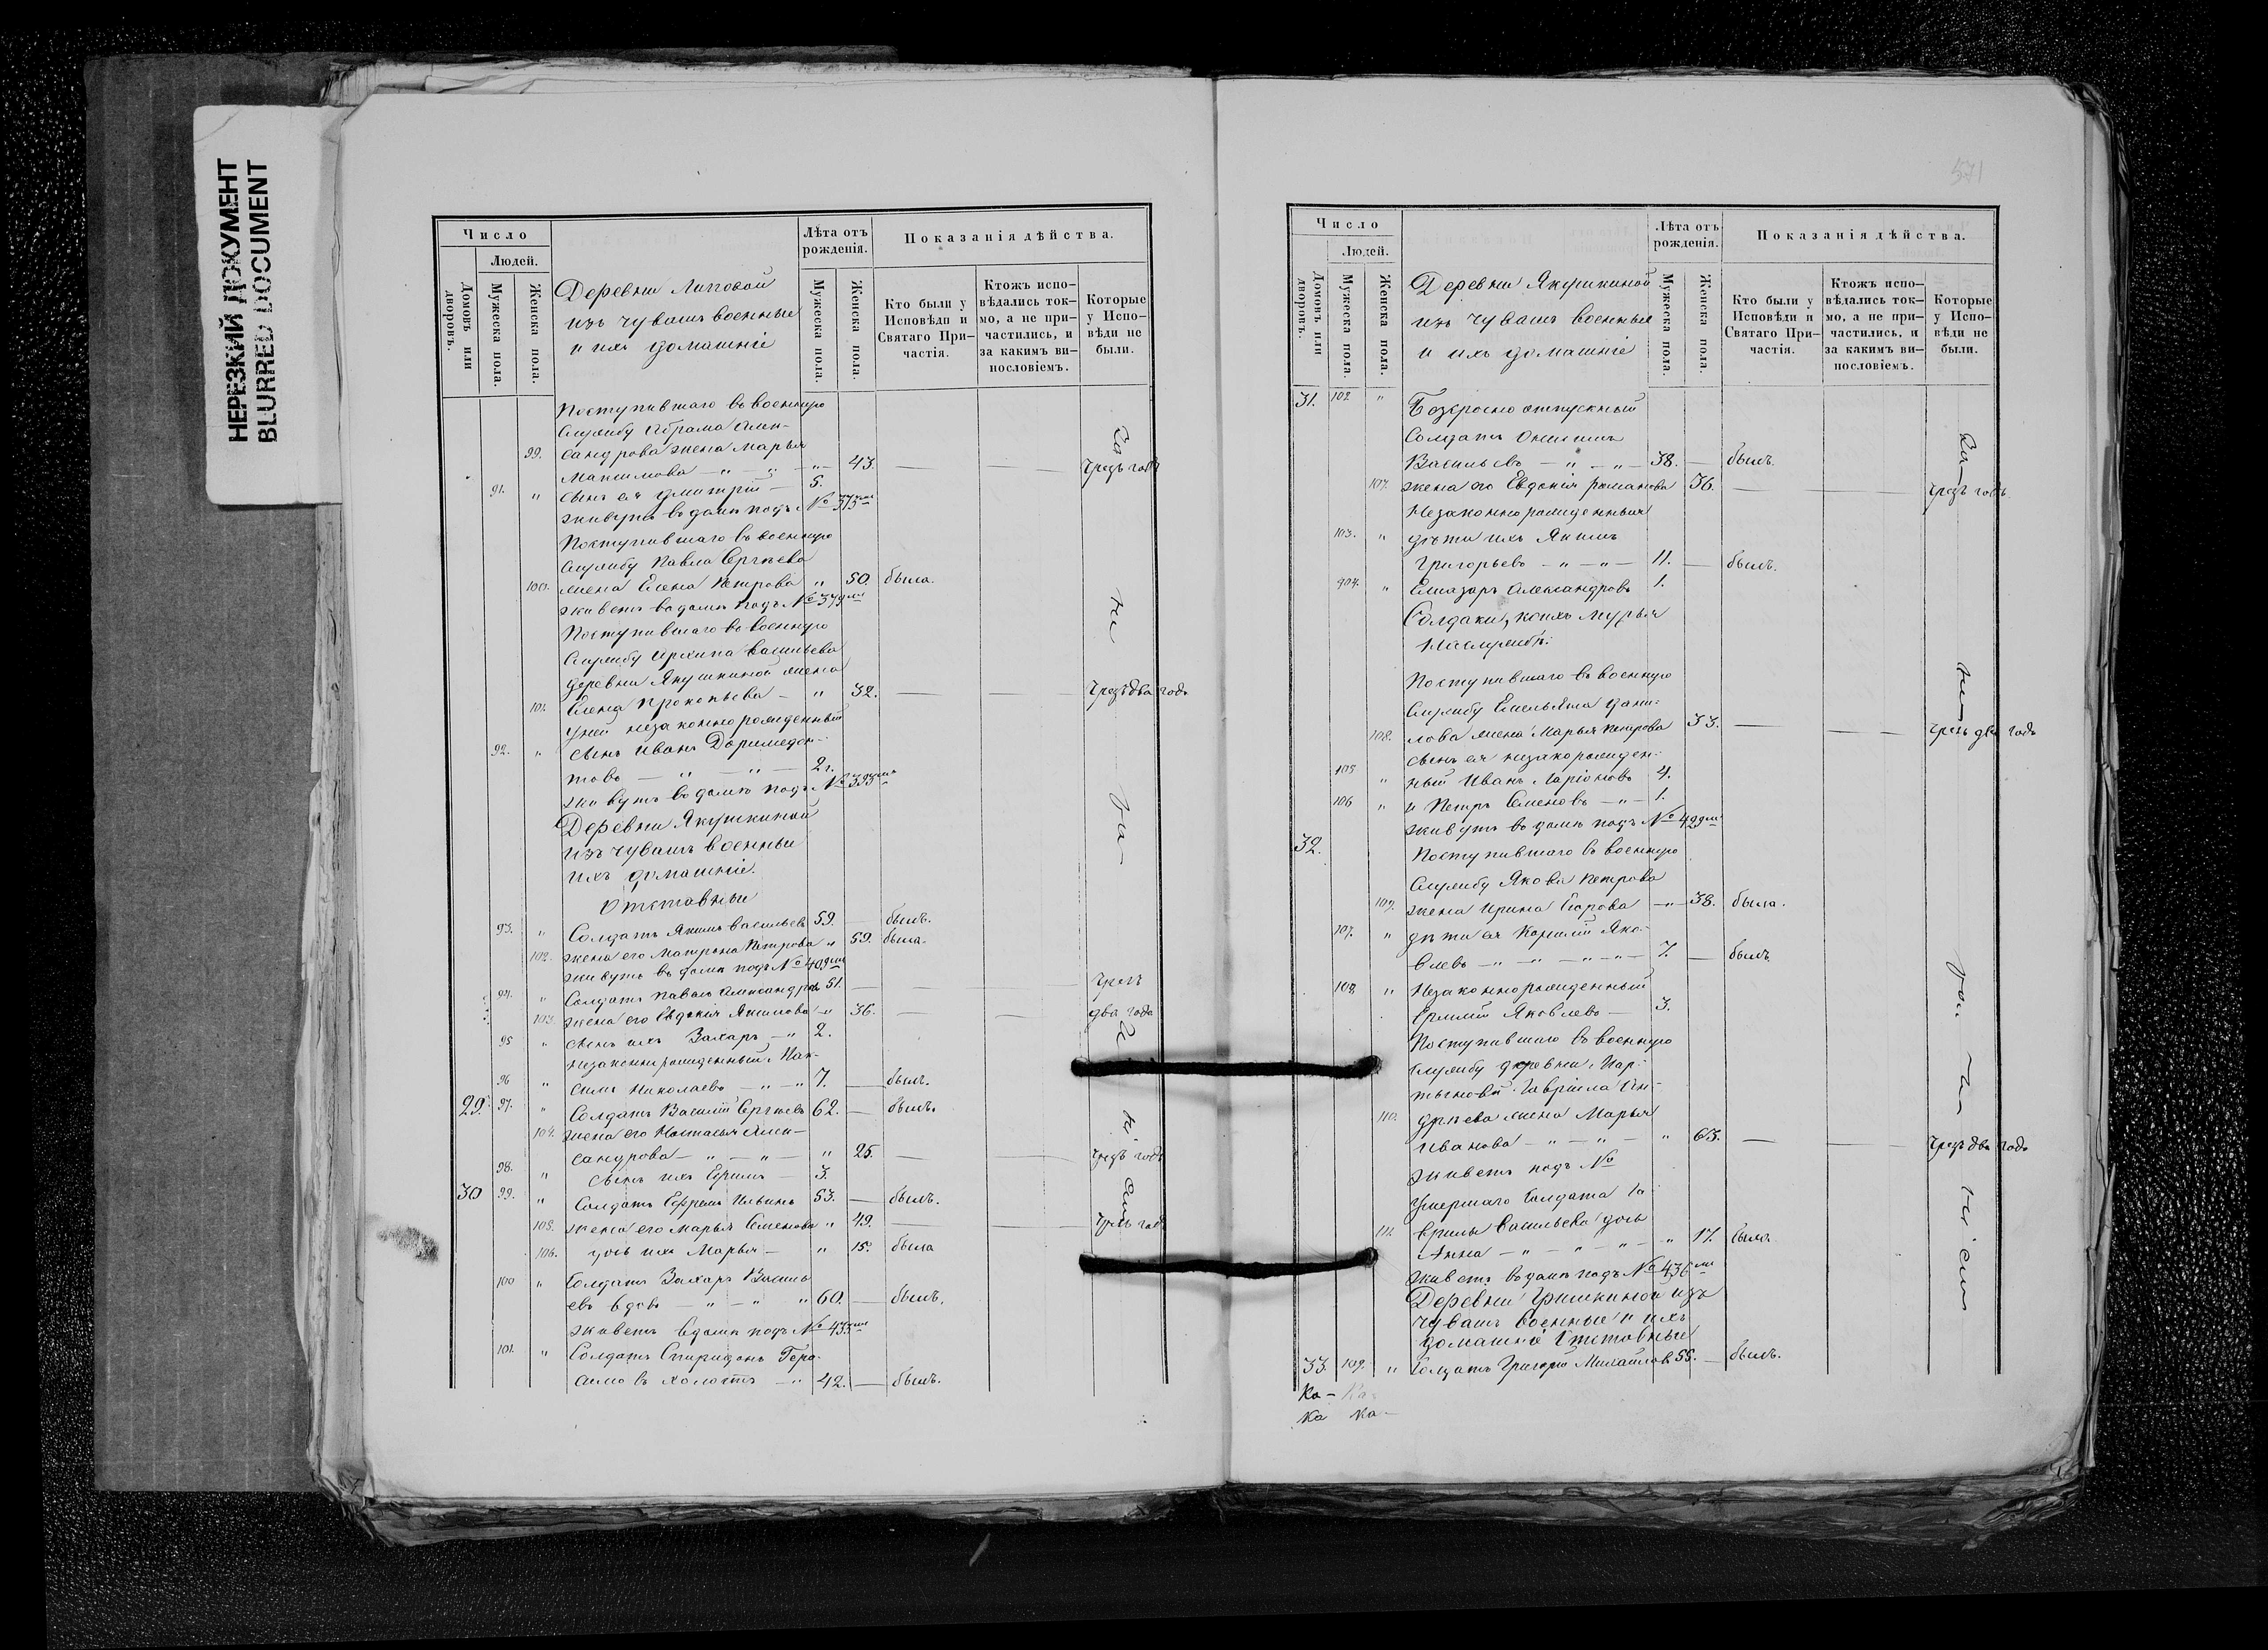 НЕРЕЗКИЙ ДОКУМЕНТ
BLURRED DOCUMENT
Число
Людей.
Домовъ или дворовъ.
Мужеска пола.
Женска пола.
Деревни Липовой
изъ чувашъ военные
и ихъ домашніе
Лѣта отъ рожденія.
Мужеска пола.
Женска пола.
Показанія дѣйства.
Кто были у Исповѣди и Святаго Причастія.
Ктожъ исповѣдались токмо, а не причастились, и за какимъ винословіемъ.
Которые у Исповѣди не были.
Поступившаго въ военную
службу Абрама Алек-
99. сандрова жена Марья
Максимова — " — " — " — 43. — — чрезъ годъ
91. " сынъ ея Дмитрій — 5.
живутъ въ домѣ подъ №
Поступившаго въ военную
службу Павла Сергѣева
100. жена Елена Петрова " 50. была.
живетъ въ домѣ подъ №
Поступившаго въ военную
службу Архипа Васильева
деревни Якушкиной жена
101. Елена Прокопьева — " 32. — — чрезъ два года
у ней незаконнорожденный
92. " сынъ Иванъ Доримедон-
товъ — " — " — 2 г.
живутъ въ домѣ подъ №
Деревни Якушкиной
изъ чувашъ военные
ихъ домашніе.
Отставные
93. " Солдатъ Якимъ Васильевъ 59. — былъ.
102. жена его Матрена Петрова " 59. была.
живутъ въ домѣ подъ № 40
94. " Солдатъ Павелъ Александровъ 51. — — чрезъ
103. жена его Евдокія Якимова " 36. — — два года
95 " сынъ ихъ Захаръ — " 2.
незаконнорожденный Мак-
96 " симъ Николаевъ — " — " 7. — былъ.
29. 97. " Солдатъ Василій Сергѣевъ 62. — былъ.
104. жена его Настасья Алек-
сандрова — " — " — " 25. — — чрезъ годъ
98. " сынъ ихъ Ефимъ — 3.
30 99. " Солдатъ Ефремъ Ильинъ 53. — былъ.
105. жена его Марья Семенова " 49. — — чрезъ годъ
106. дочь ихъ Марья — " 15. была
100 " Солдатъ Захаръ Василь
евъ вдовъ — " — " " 60. — былъ.
живетъ въ домѣ подъ № 43
101. " Солдатъ Спиридонъ Гера-
симовъ холостъ — " 42. — былъ.
571
Число
Людей.
Домовъ или дворовъ.
Мужеска пола.
Женска пола.
Деревни Якушкиной
изъ чувашъ военные
и ихъ домашніе
Лѣта отъ рожденія.
Мужеска пола.
Женска пола.
Показанія дѣйства.
Кто были у Исповѣди и Святаго Причастія.
Ктожъ исповѣдались токмо, а не причастились, и за какимъ винословіемъ.
Которые у Исповѣди не были.
31. 102 " Безсрочно отпускный
Солдатъ
Васильевъ — " — " — 38. — былъ.
107. жена его Евдокія Романова 36. — — чрезъ годъ
Незаконнорожденныя
103. " дѣти ихъ Якимъ
Григорьевъ — " — " — 11. — былъ.
904. " Елиазаръ Александровъ 1.
Поступившаго въ военную
службу Емельяна Дани-
108. лова жена Марья Петрова 33. — — чрезъ два года
сынъ ея незакорожден-
105 " ный Иванъ Ларіоновъ 4.
106 " и Петръ Семеновъ — " — 1.
живутъ въ домѣ подъ № 42
32. Поступившаго въ военную
службу Якова Петрова
109. жена Ирина Егорова — " — 38. была.
107. " дѣти ея Корнилій Яко-
влевъ — " — " — " — " — 7. — былъ
108. " Незаконнорожденный
Ермилій Яковлевъ — 3.
Поступившаго въ военную
службу деревни
Гавріила Ан-
110. дрѣева жена Марья
Иванова — " — " — " 63. — — чрезъ два года
живетъ подъ №
Умершаго Солдата Га-
врилы Васильева дочь
111. Анна — " — " — " — " 17. была.
живетъ въ домѣ подъ № 436
Деревни Гришкиной изъ
чувашъ военные и ихъ
домашніе Отставные
33. 109. " Солдатъ Григорій Михайловъ 55. — былъ.
Ка- Ка-
Ка Ка-